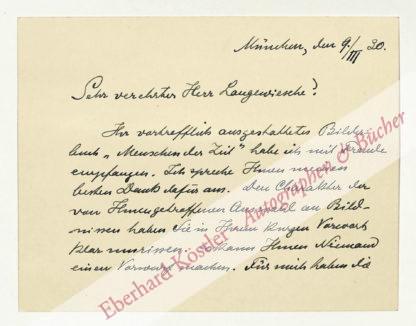 München, den 9./III 30.
Sehr verehrter Herr Langewiesche!
Ihr vortrefflich ausgestaltetes Bilder-
buch „Menschen der Zeit" habe ich mit Freude
empfangen. Ich spreche Ihnen meinen
besten Dank dafür aus. Den Charakter der
von Ihnen getroffenen Auswahl an Bild-
nissen haben Sie in Ihrem kurzen Vorwort
klar umrissen. So kann Ihnen Niemand
einen Vorwurf machen. Für mich haben die
Eberhard Köstler Autographen & Bücher